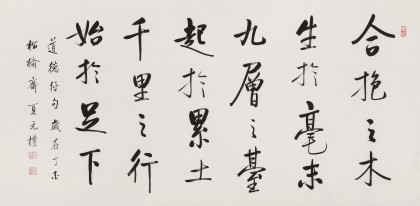 合抱之木
生於毫末
九層之臺
起於累土
千里之行
始於足下
道德經句 歲在丁
松榆齋 夏元樸